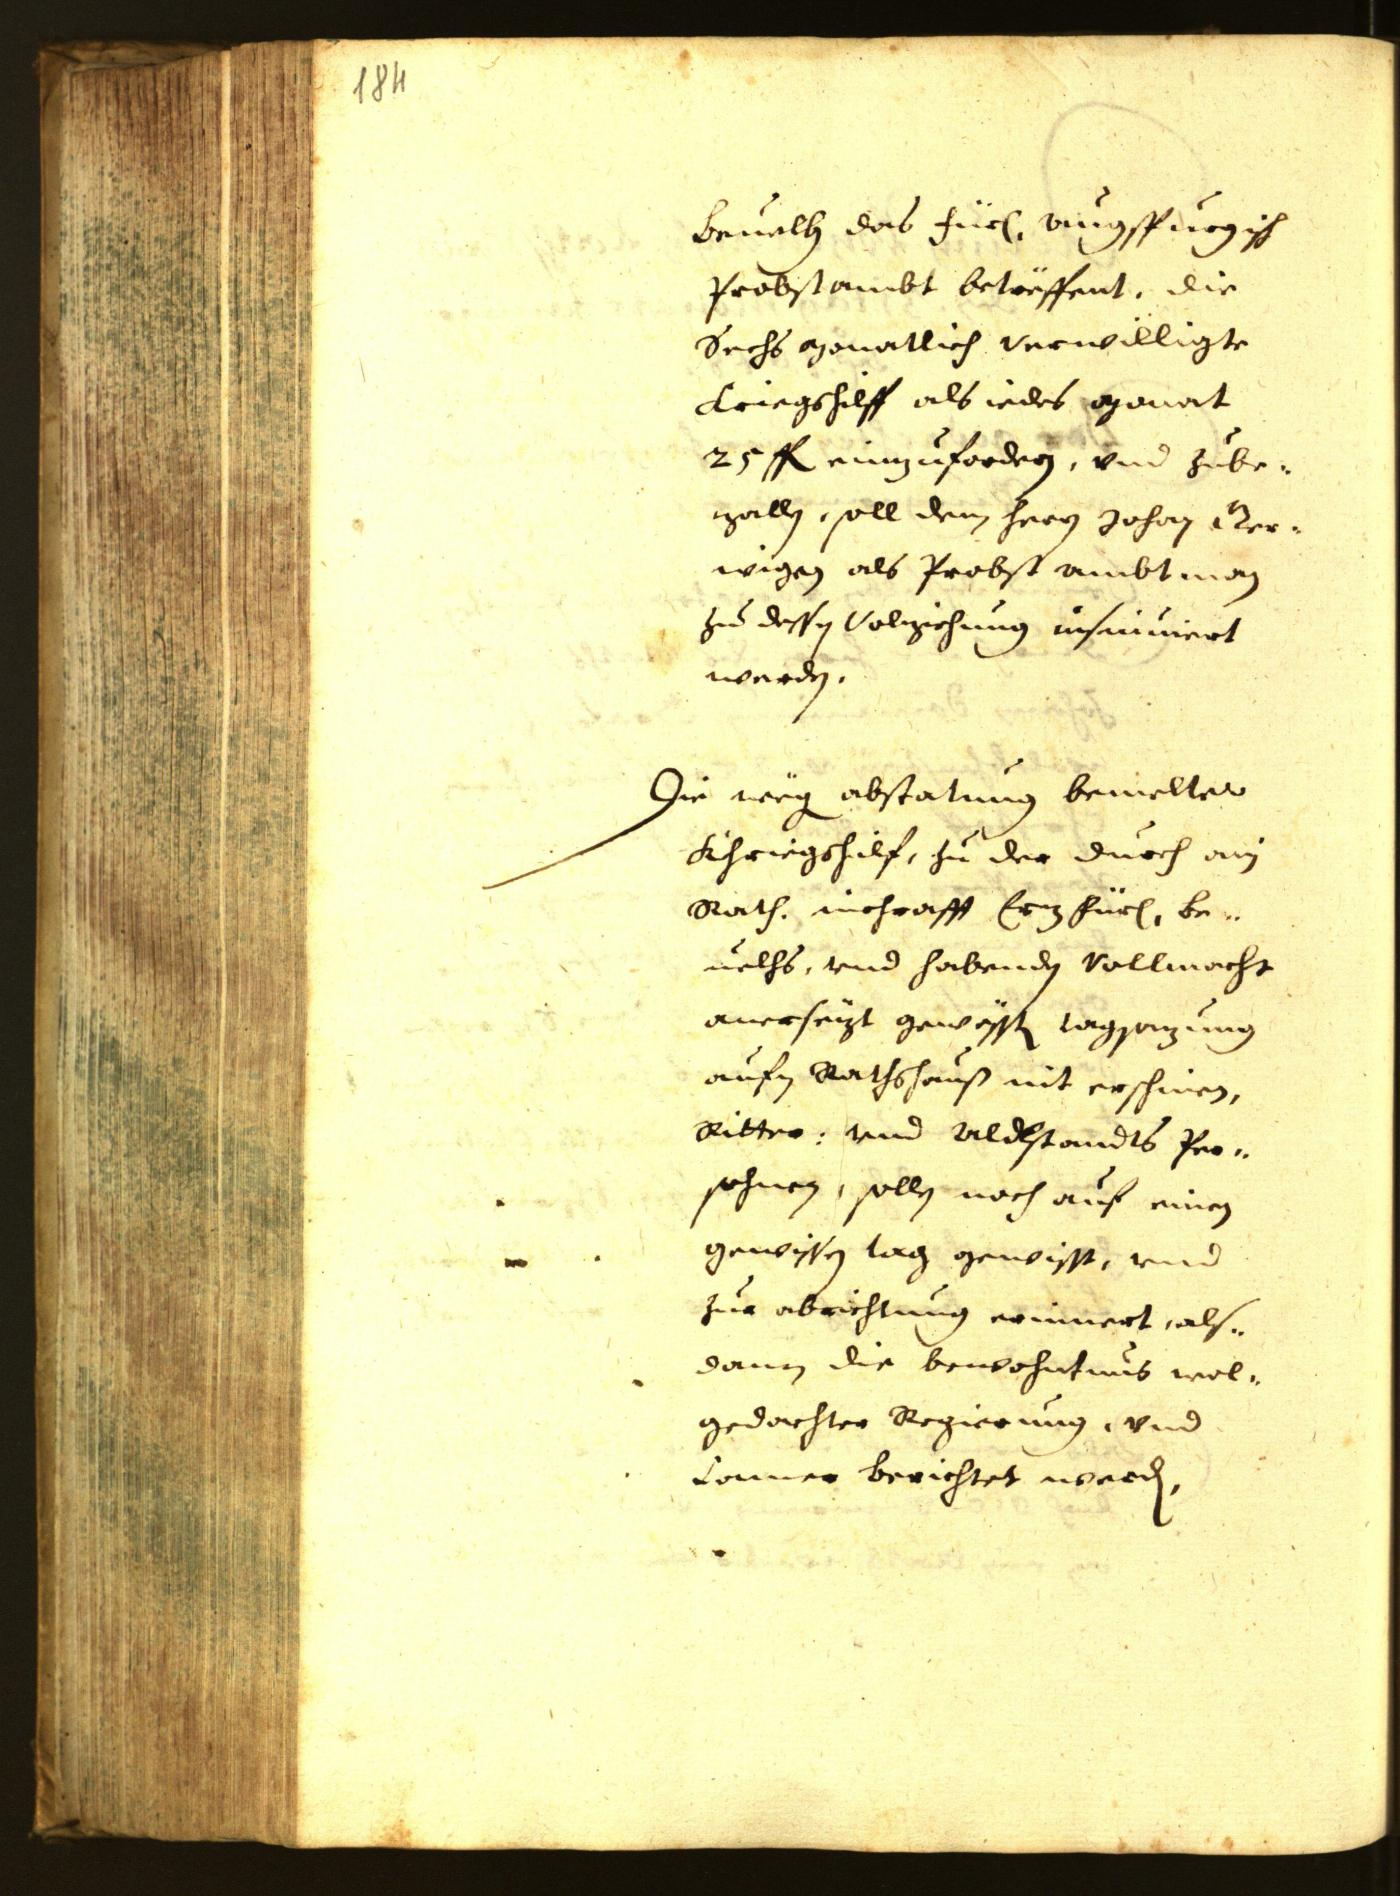 184
Beuelh das fürl. augspurgisch
Probstambt betreffent, die
Sechs monatlich verwilligte
Kriegshilff als iedes monat
25 fl einzufordern, vnd zube-
zalln, soll dem herrn Johan
wigen als Probst ambtman
zu dessn Volziehung insinuiert
werdn.
Die weg abstatung bemelter
Khriegshilf, zu der durch ain
Rath. incrafft Erzfürl. be-
uelhs, vnd habendn Vollmacht
angesezt tagsazung
aufn Rathshauß nit erschinen,
Ritter: vnd Adlstandts Per-
sohnen, solln noch auf einen
gewissn tag gewisst, vnd
zur abrichtung erinnert, als-
dann die bewohntnus wol-
gedachter Regierung, vnd
Camer berichtet werdn,